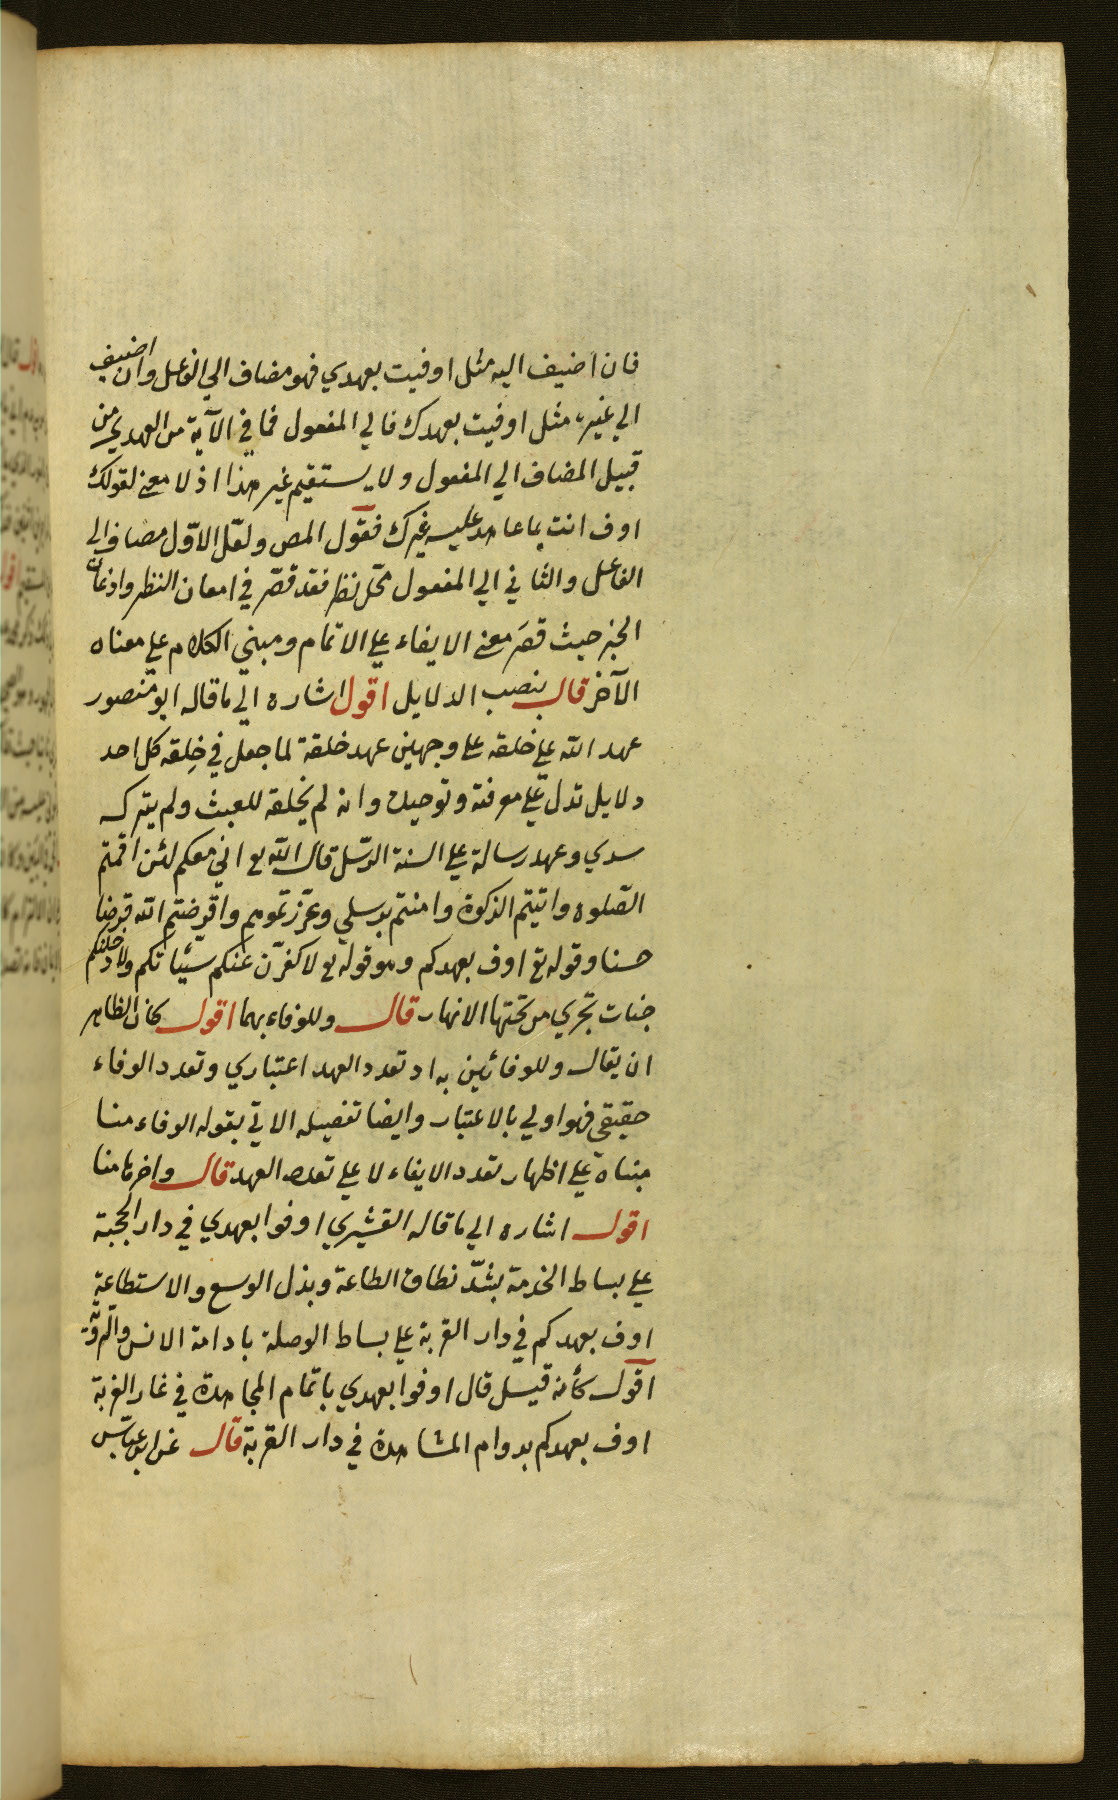 فان اضيف اليه مثل اوفيت بعهدي فهو مضاف الي الفاعل وان اضيف
الي غيره مثل اوفيت بعهدك فالي المفعول فما في الآية من العهدين من
قبيل المضاف الي المفعول ولا يستقيم غير هذا اذ لا معني لقولك
اوف انت بما عاهد عليه غيرك فقول المص ولعل الاول مضاف الي
الفاعل والثاني الي المفعول محل نظر فقد قصر في امعان النظر واذعان
الخبر حيث قصر معني الايفاء علي الاتمام ومبني الكلام علي معناه
الآخر قال بنصب الدلايل اقول اشاره الي ما قاله ابو منصور
عهد الله علي خلقه علي وجهين عهد خلقة لما جعل في خِلقه كل احد
دلايل تدل علي معرفته وتوحيده وانه لم يخلقه للعبث ولم يتركه
سدي وعهد رسالة علي السنة الرسل قال الله تع اني معكم لئن اقمتم
الصلوه واتيتم الزكوة وامنتم برسلي وعزرتموهم واقرضتم الله قرضا
حسنا وقوله تع اوف بعهدكم وهو قوله تع لاكفرن عنكم سيئاتكم ولادخلنكم
جنات تجري من تحتها الانهار قال وللوفاء بهما اقول كان الظاهر
ان يقال وللوفائين به اذ تعدد العهد اعتباري وتعدد الوفاء
حقيقي فهو اولي بالاعتبار وايضا تفصيله الاتي بقوله الوفاء منا
مبناه علي اظهار تعدد الايفاء لا علي تعدد العهد قال واخرها منا
اقول اشاره الي ما قاله القشيري اوفوا بعهدي في دار المحبة
علي بساط الخدمة بشدّ نطاق الطاعة وبذل الوسع والاستطاعة
اوف بعهدكم في دار القربة علي بساط الوصلة بادامة الانس والرؤية
اقول كأنه قيل قال اوفوا بعهدي باتمام المجاهدة في غار الغربة
اوف بعهدكم بدوام المشاهدة في دار القربة قال عن ابن عباس